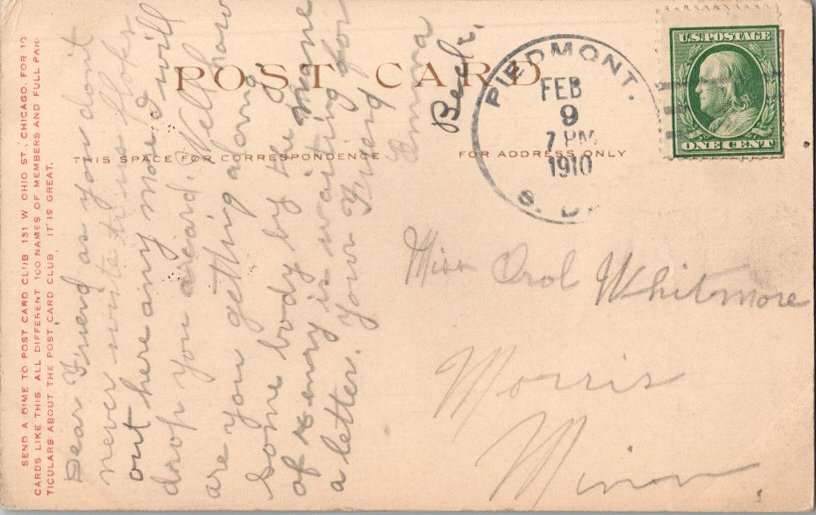 POST CARD
THIS SPACE FOR CORRESPONDENCE
FOR ADDRESS ONLY
SEND A DIME TO POST CARD CLUB, 131 W OHIO ST., CHICAGO, FOR 10
CARDS LIKE THIS, ALL DIFFERENT 100 NAMES OF MEMBERS AND FULL PAR-
TICULARS ABOUT THE POST CARD CLUB. IT IS GREAT.
Dear Friend as you don't
never write to us folks
out here any more I will
drop you a card. Well how
are you getting along
some body by the name
of Henry is waiting for
a letter. Your Friend
Anna
Beck.
PIEDMONT.
FEB
9
7 PM
1910
S. D.
U.S. POSTAGE
ONE CENT
Miss Orol Whitmore
Morris
Minn.